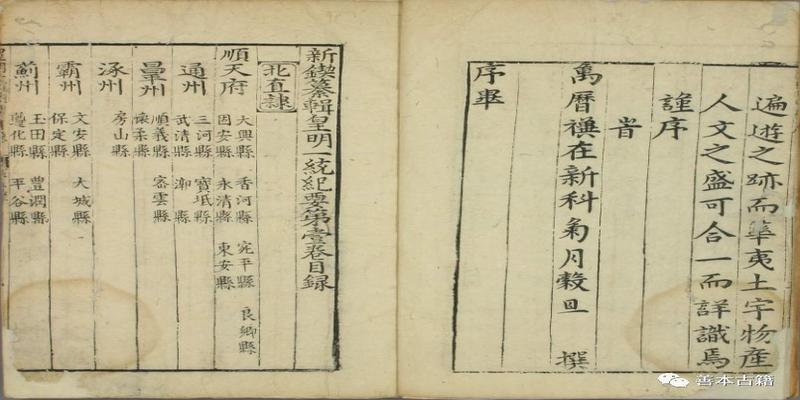 遍遊之跡而華夷土宇物産
人文之盛可合一而詳識焉
謹序
旹
萬曆禩在新科菊月穀旦 撰
序畢
新鍥纂輯皇明一統紀要第壹卷目録
北直隸
順天府 大興縣 宛平縣 良鄉縣
固安縣 永清縣 東安縣
香河縣
通州 三河縣 寶坻縣
武清縣 漷縣
㬂州 順義縣 密雲縣
懷柔縣
涿州 房山縣
霸州 文安縣 大城縣
保定縣
薊州 玉田縣 豐潤縣
遵化縣 平谷縣
善本古籍